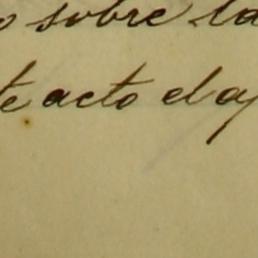 o sobre la
te acto el oy